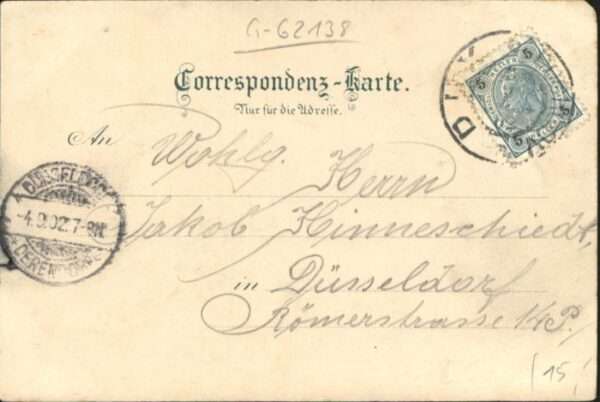 G-62138
Correspondenz-Karte.
Nur für die Adresse.
An Wohlg. Herrn
Jakob Hinneschiedt,
in Düsseldorf
Römerstrasse 14 P.
DÜSSELDORF
4.9.02.7-8N.
DERENDORF
5
5
(15,